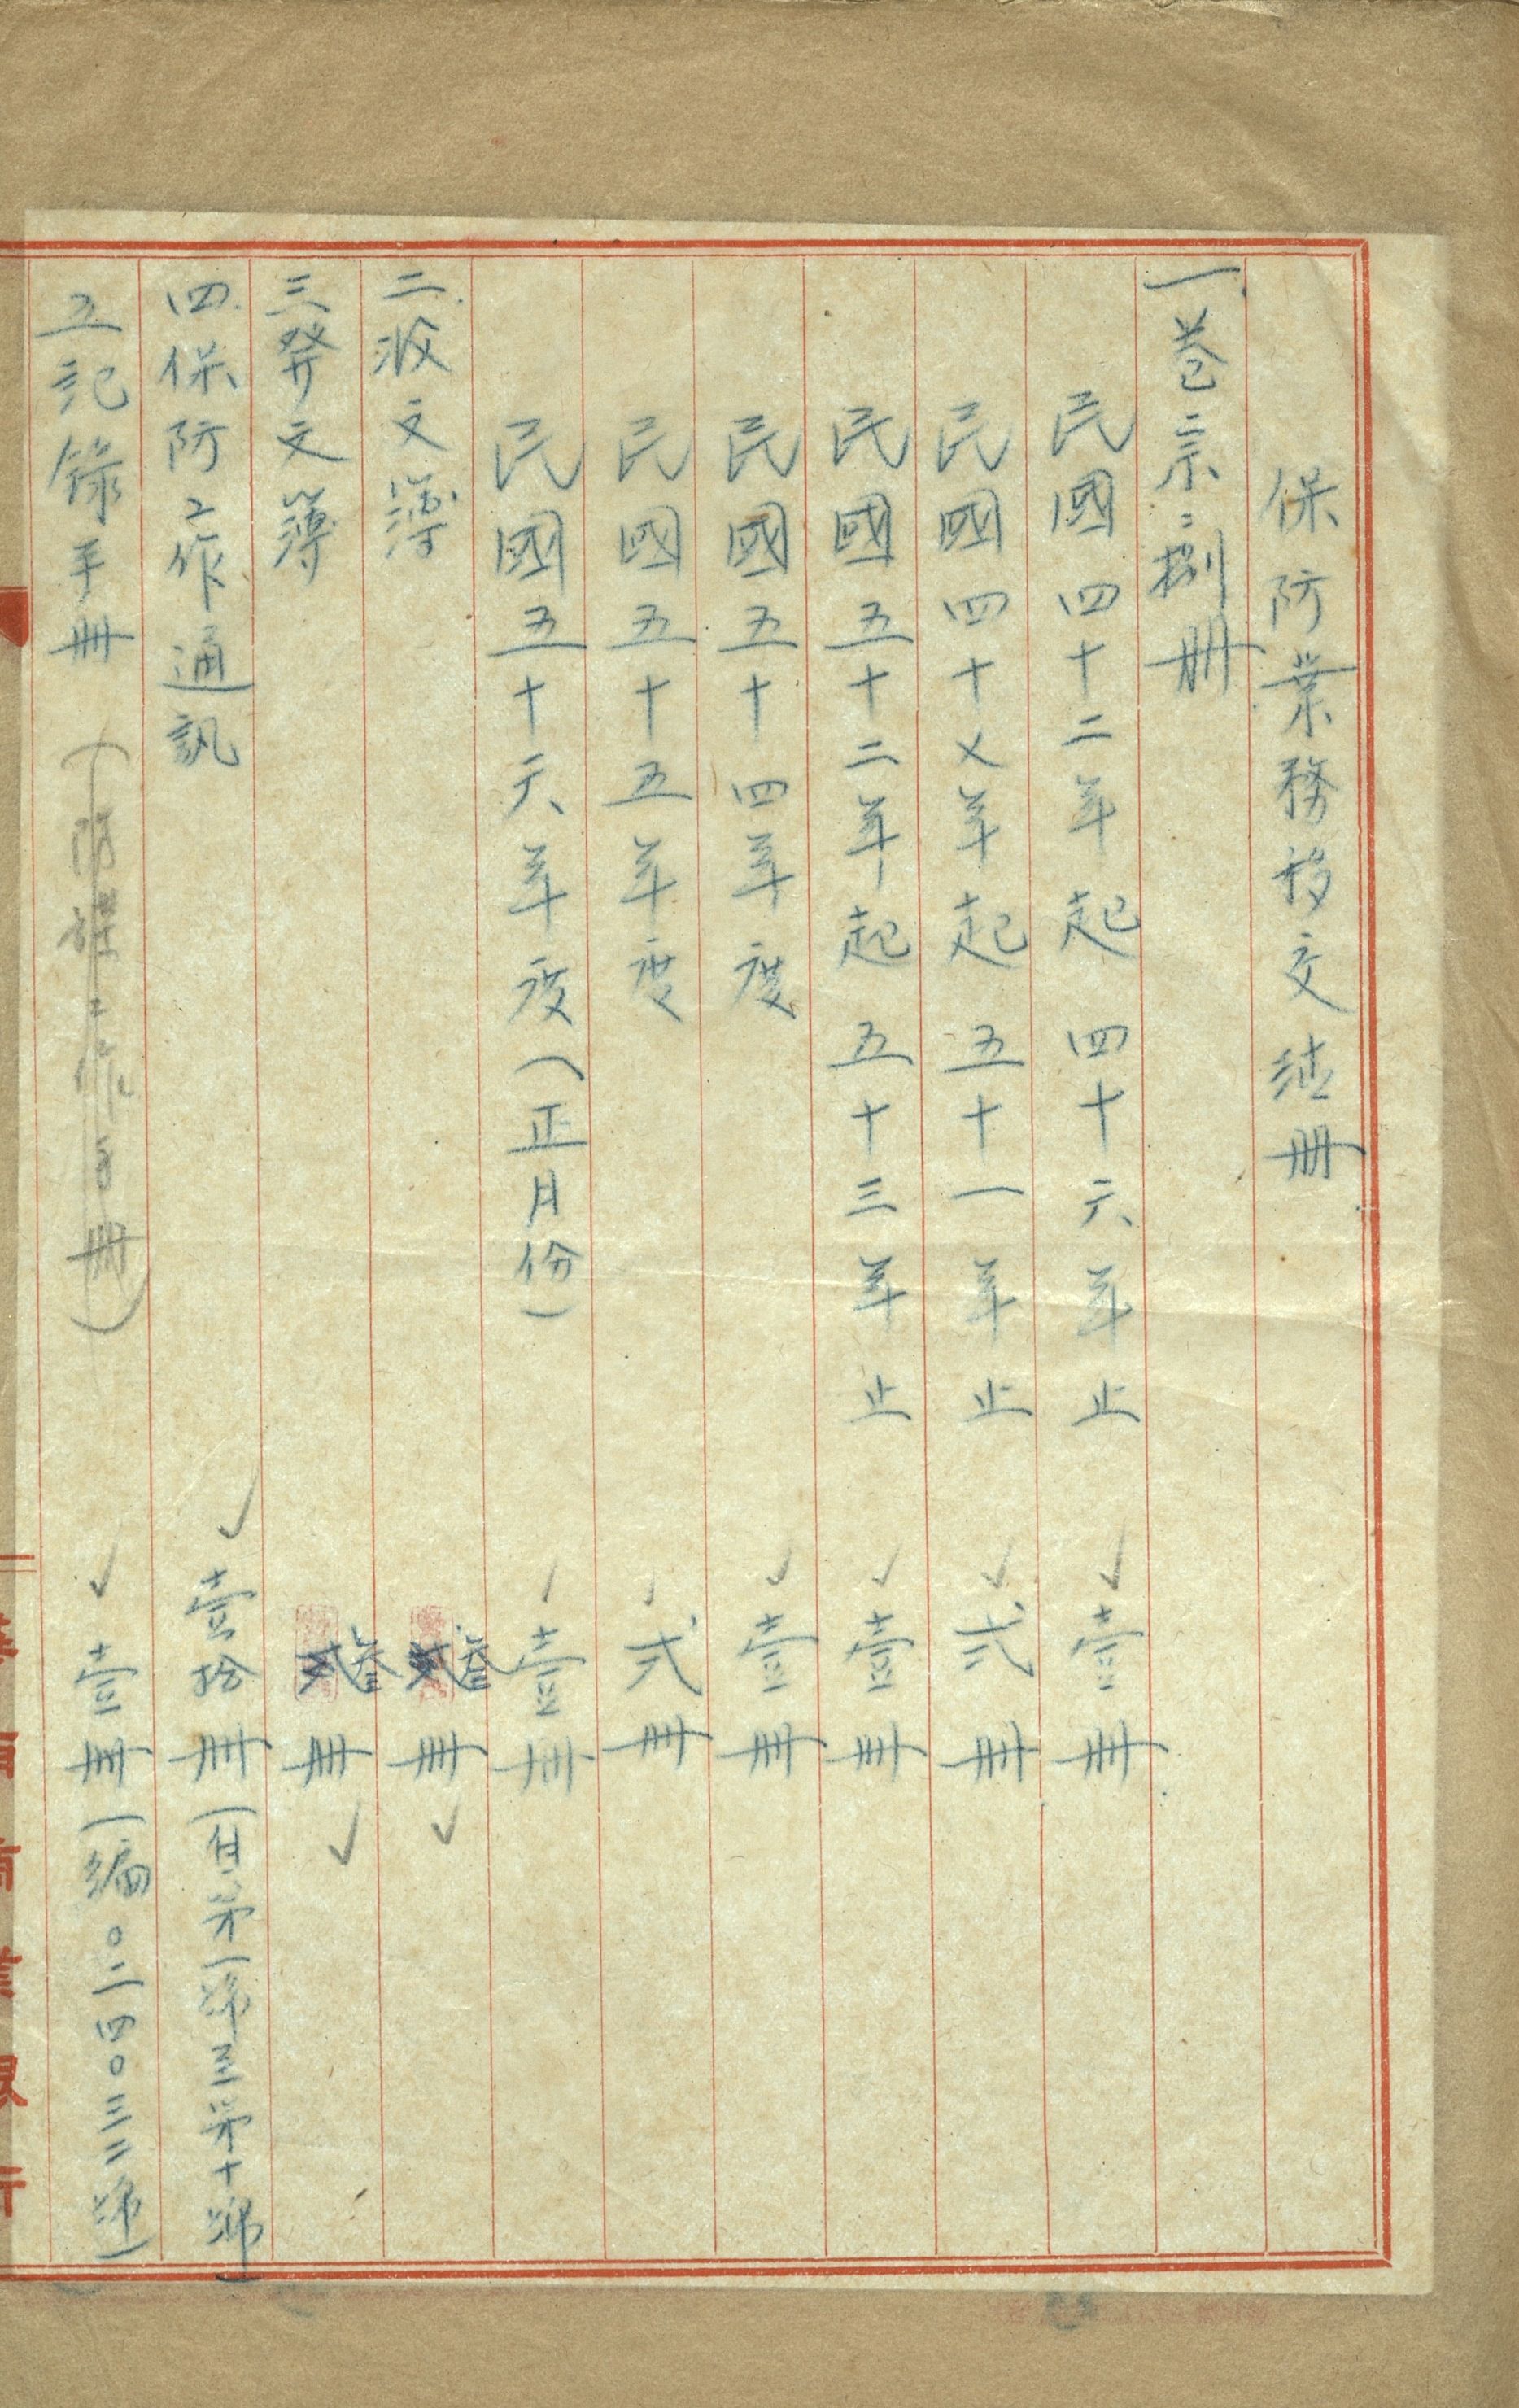 保防業務移交清册
一、卷宗：捌册
民國四十二年起 四十六年止 壹册
民國四十七年起 五十一年止 弍册
民國五十二年起 五十三年止 壹册
民國五十四年度 壹册
民國五十五年度 弍册
民國五十六年度（正月份） 壹册
二、收文簿 叁册
三發文簿 叁册
四、保防工作通訊 壹拾册（自第一號至第十號）
五記錄手册（防諜工作手册） 壹册（編〇二四〇三二號）